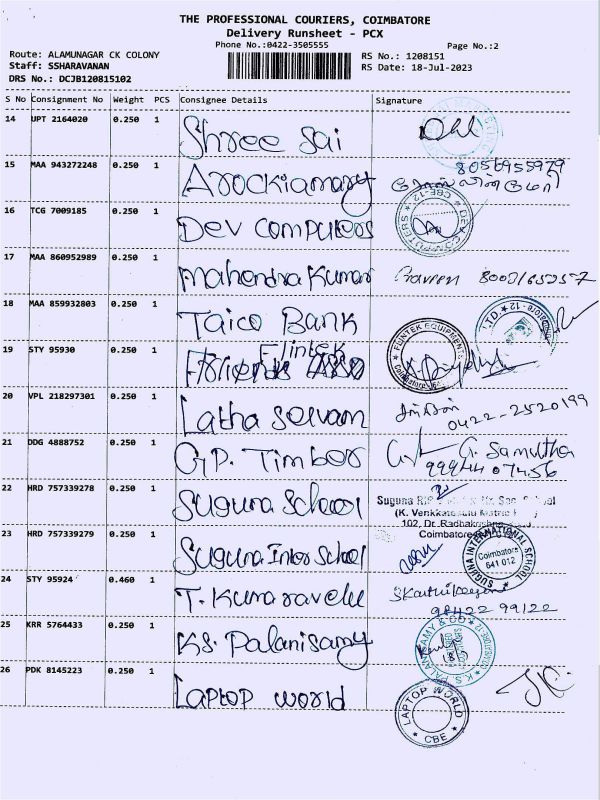 THE PROFESSIONAL COURIERS, COIMBATORE
Delivery Runsheet - PCX
Phone No.:0422-3505555 Page No.:2
Route: ALAMUNAGAR CK COLONY RS No.: 1208151
Staff: SSHARAVANAN RS Date: 18-Jul-2023
DRS No.: DCJB120815102
S No Consignment No Weight PCS Consignee Details Signature
14 UPT 2164020 0.250 1 Shree Sai
15 MAA 943272248 0.250 1 Arockiamary 8056955979
16 TCG 7009185 0.250 1 Dev Computers
DEV COMPUTERS CBE-12
17 MAA 860952989 0.250 1 Mahendra Kumar Praveen
18 MAA 859932803 0.250 1 Taico Bank
19 STY 95930 0.250 1 Flintek
FLINTEK EQUIPMENTS
20 VPL 218297301 0.250 1 Latha Selvam 0422-2520199
21 DDG 4888752 0.250 1 G.P. Timber G. Samuthra
9994407456
22 HRD 757339278 0.250 1 Suguna School Suguna
(K. Venkkatesalu Matric
102, Dr. Radhakrishna
Coimbatore
23 HRD 757339279 0.250 1 Suguna Inter School
SUGUNA INTERNATIONAL SCHOOL Coimbatore 641 012
24 STY 95924 0.460 1 T. Kumaravelu
98422 99122
25 KRR 5764433 0.250 1 KS. Palanisamy
K.S. PALANISAMY & CO
26 PDK 8145223 0.250 1 Laptop World
LAPTOP WORLD CBE